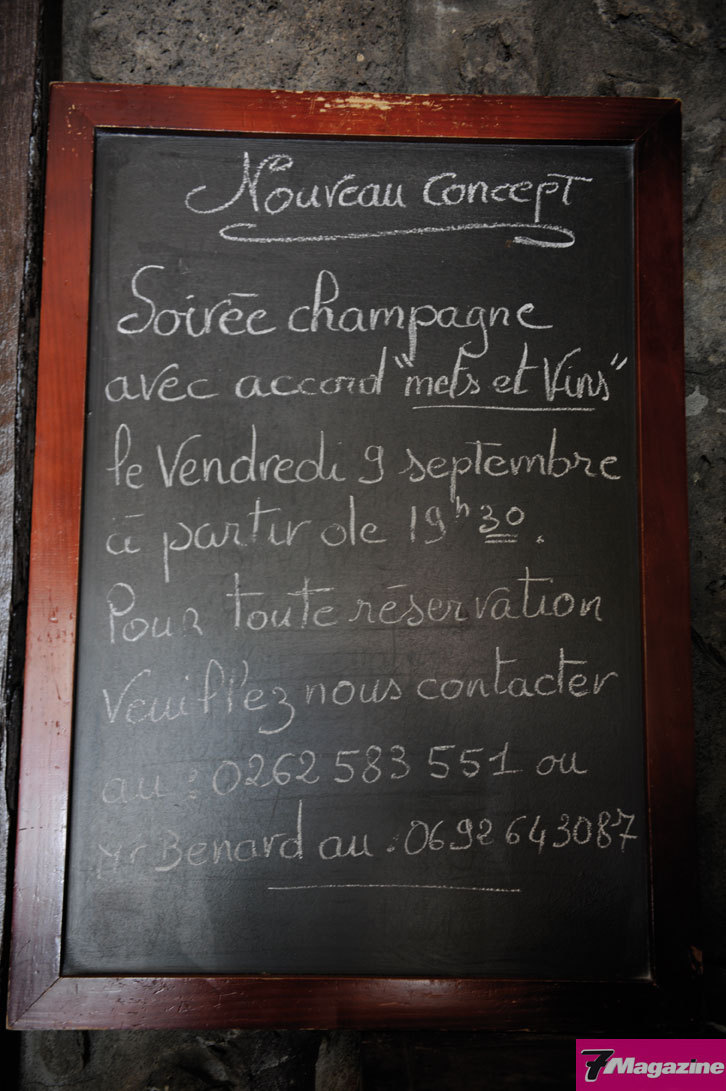 Nouveau Concept
Soirée champagne
avec accord "mets et Vins"
le Vendredi 9 septembre
à partir de 19h30.
Pour toute réservation
Veuillez nous contacter
au : 0262 583 551 ou
Mr Benard au : 0692 643087
7Magazine